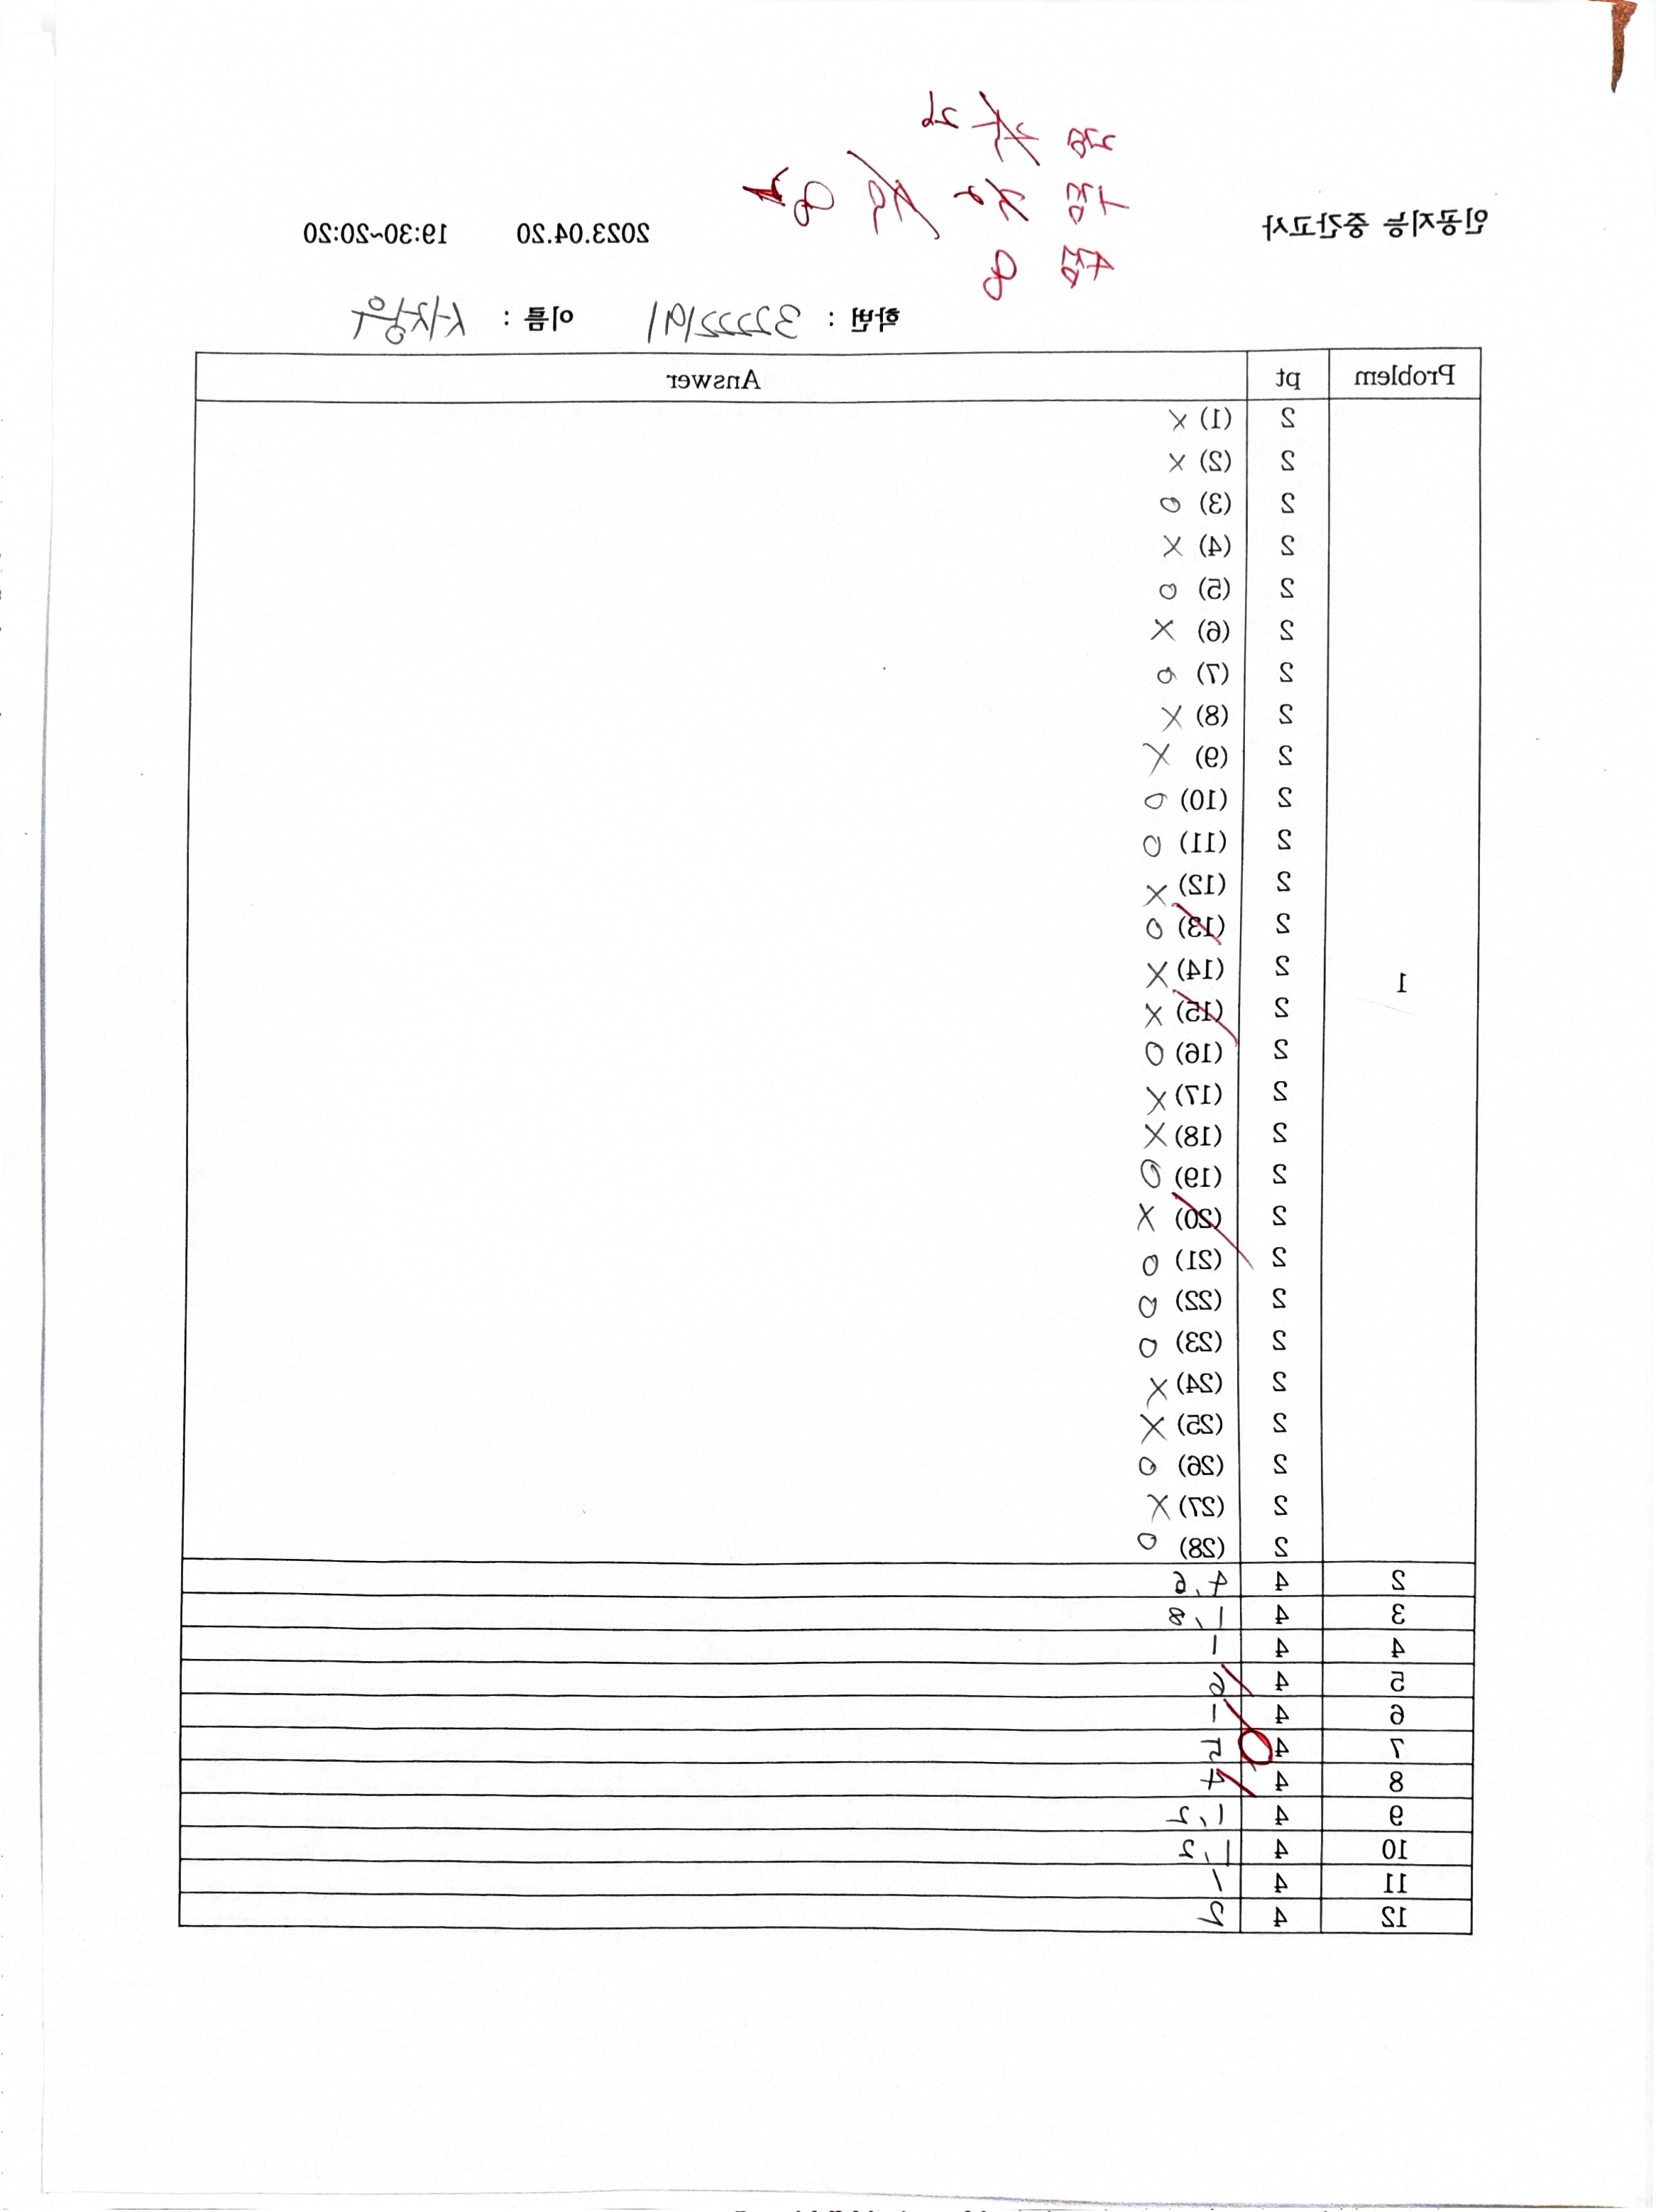 2점 26
4점 8
인공지능 중간고사 2023.04.20 19:30~20:20
학번 : 32222191 이름 : 서정우
Problem pt Answer
1
2 (1) X
2 (2) X
2 (3) O
2 (4) X
2 (5) O
2 (6) X
2 (7) O
2 (8) X
2 (9) X
2 (10) O
2 (11) O
2 (12) X
2 (13) O
2 (14) X
2 (15) X
2 (16) O
2 (17) X
2 (18) X
2 (19) O
2 (20) X
2 (21) O
2 (22) O
2 (23) O
2 (24) X
2 (25) X
2 (26) O
2 (27) X
2 (28) O
2 4 4, 6
3 4 1, 8
4 4 1
5 4 6
6 4 1
7 4 5
8 4 4
9 4 1, 2
10 4 1, 2
11 4 1
12 4 2